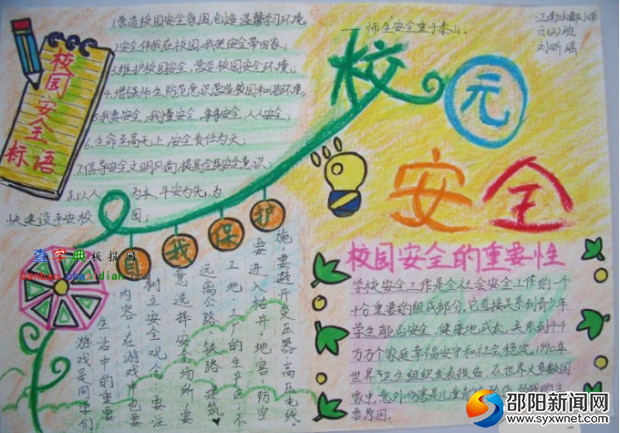 校园安全标语
1.营造校园安全氛围,创造温馨学习环境
2.安全伴我在校园,我把安全带回家;
3.维护校园安全,营造校园安全环境;
4.增强师生防范意识,营造校园和谐环境;
5.我要安全,我懂安全,事事安全,人人安全;
6.生命至高无上,安全责任为天;
7.倡导安全文明风尚,提高全民安全意识;
8.以人 为本,平安为先,为
快速设平安校 园;
师生安全重于泰山.
校园
安全
自我保护
查字典板报网
游戏是同学们
生活中的重要
内容,在游戏中也要
树立安全观念:要注
意选择安全场所;要
远离公路、铁路、建筑
工地、工厂的生产区;不
要进入枯井、地窖、防空
施;要避开变压器、高压电线.
校园安全的重要性
学校安全工作是全社会安全工作的一个
十分重要的组成部分.它直接关系到青少年
学生能否安全、健康地成长,关系到千千
万万个家庭幸福安宁和社会稳定.
世界 组织发表报告,在世界大多数国
家中,意外伤害是儿童
要原因.
邵阳新闻网
www.syxwnet.com